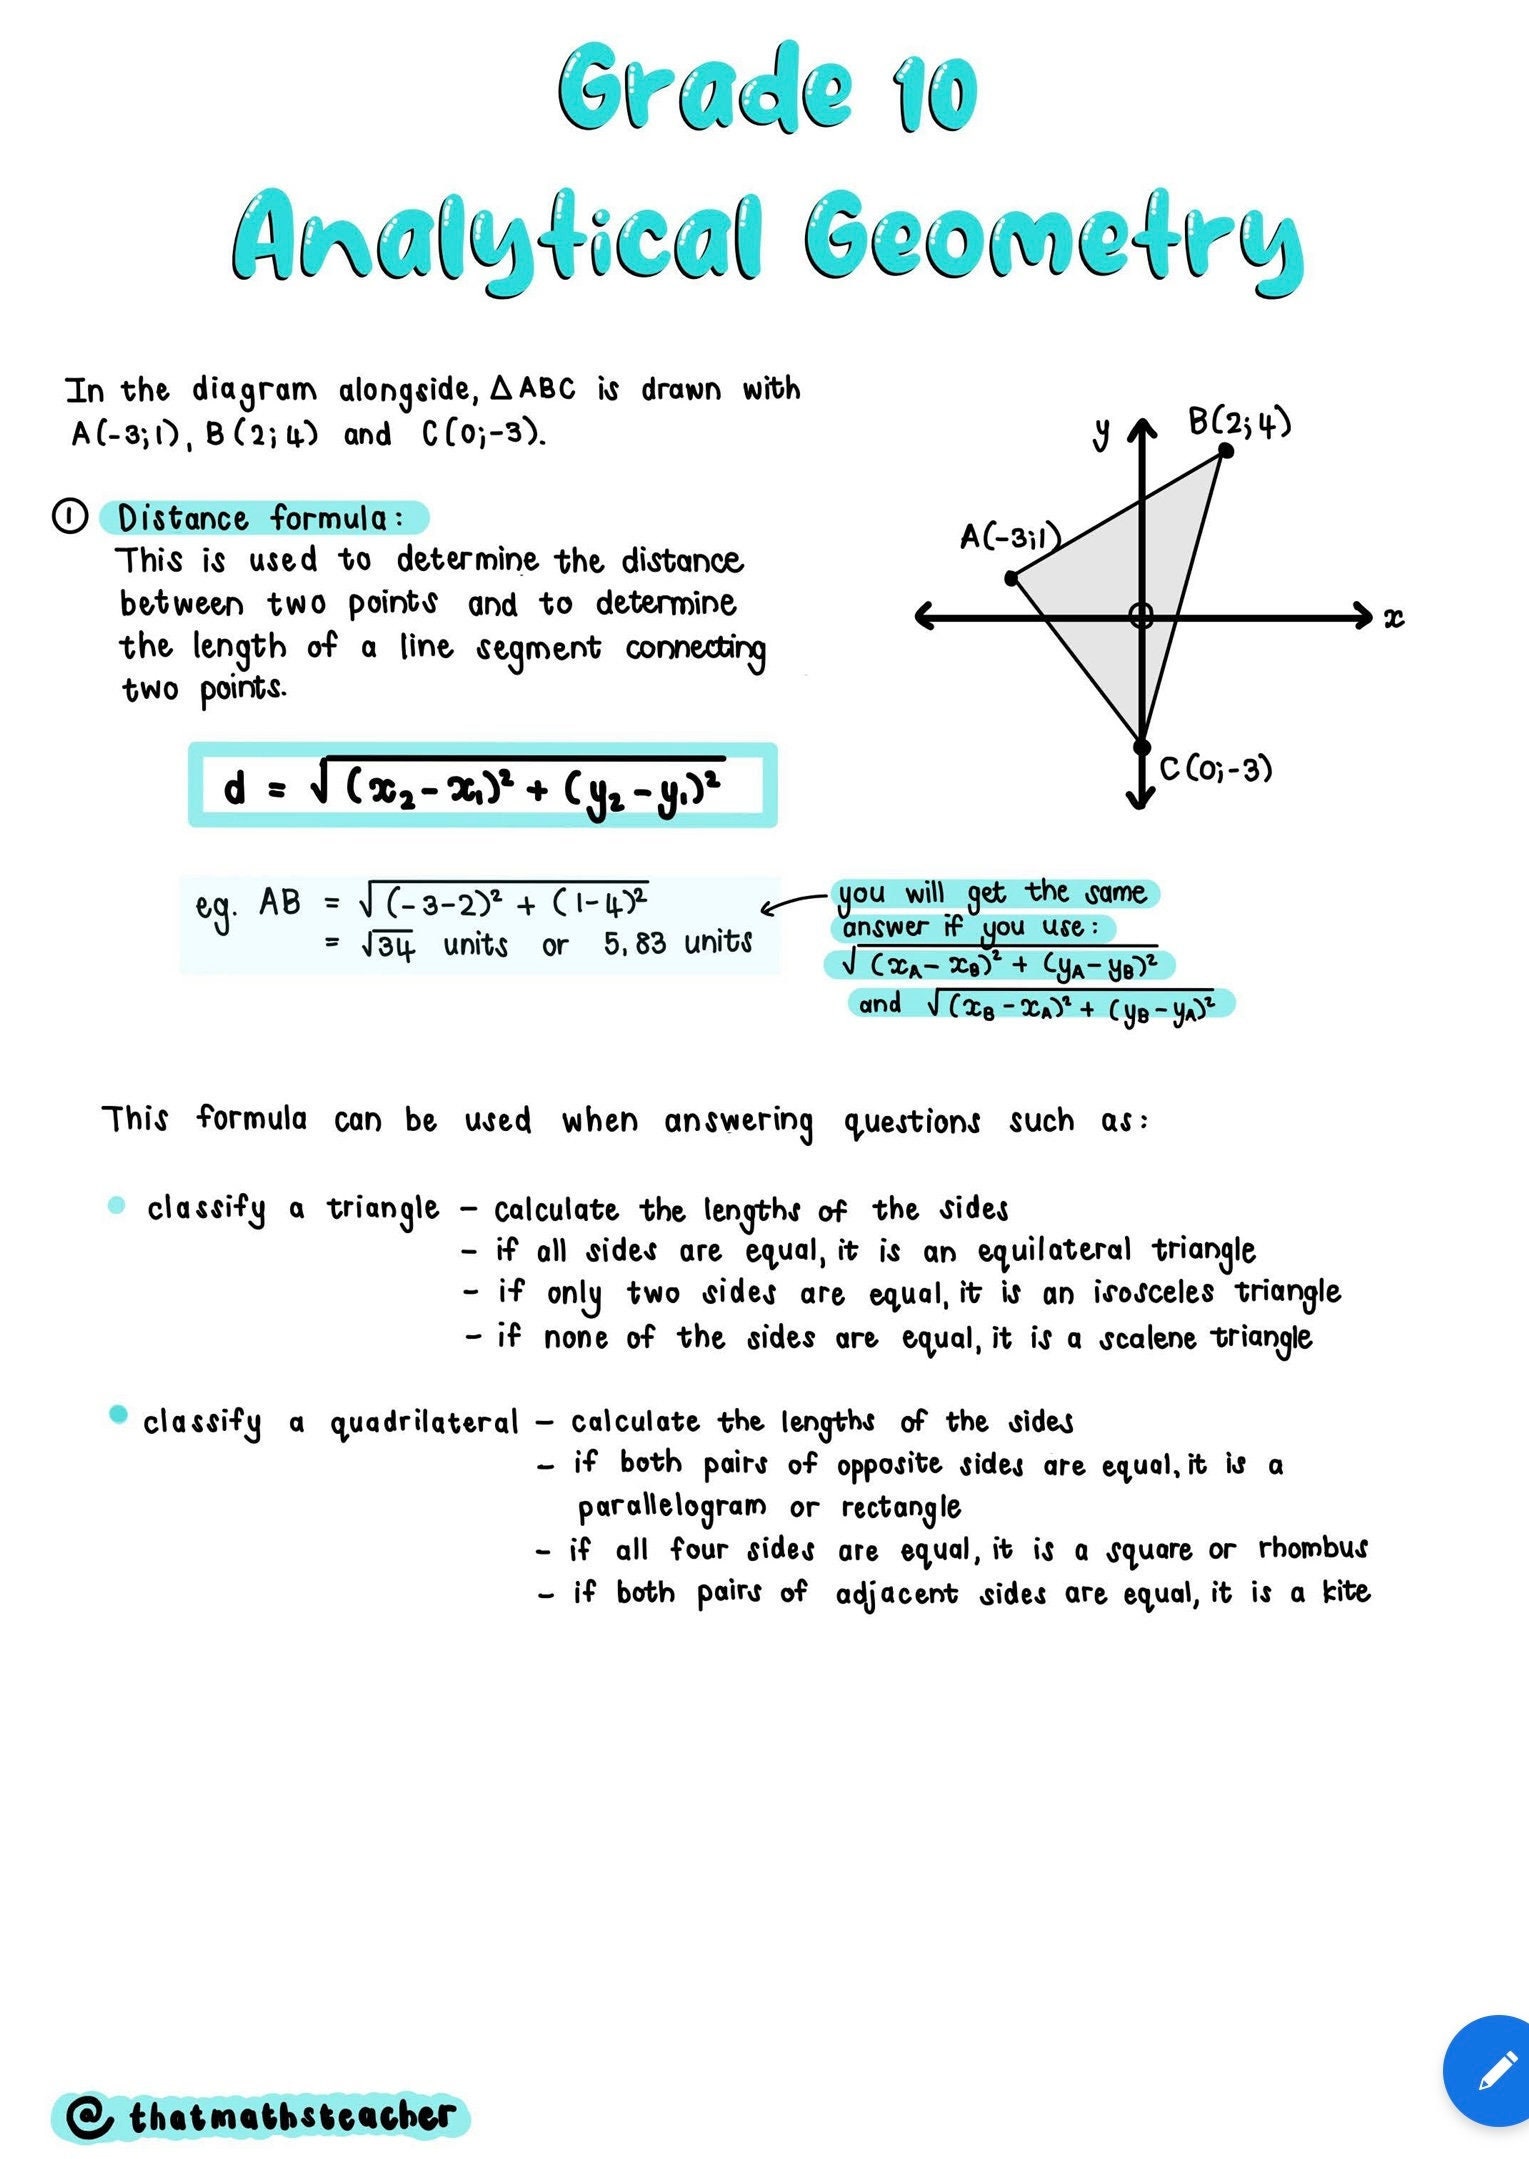 Grade 10
Analytical Geometry
In the diagram alongside, △ABC is drawn with
A(-3;1), B(2;4) and C(0;-3).
① Distance formula:
This is used to determine the distance
between two points and to determine
the length of a line segment connecting
two points.
y
B(2;4)
A(-3;1)
x
C(0;-3)
d = √(x₂-x₁)² + (y₂-y₁)²
eg. AB = √(-3-2)² + (1-4)²
= √34 units or 5,83 units
you will get the same
answer if you use:
√(xA - xB)² + (yA - yB)²
and √(xB - xA)² + (yB - yA)²
This formula can be used when answering questions such as:
• classify a triangle - calculate the lengths of the sides
- if all sides are equal, it is an equilateral triangle
- if only two sides are equal, it is an isosceles triangle
- if none of the sides are equal, it is a scalene triangle
• classify a quadrilateral - calculate the lengths of the sides
- if both pairs of opposite sides are equal, it is a
parallelogram or rectangle
- if all four sides are equal, it is a square or rhombus
- if both pairs of adjacent sides are equal, it is a kite
@thatmathsteacher